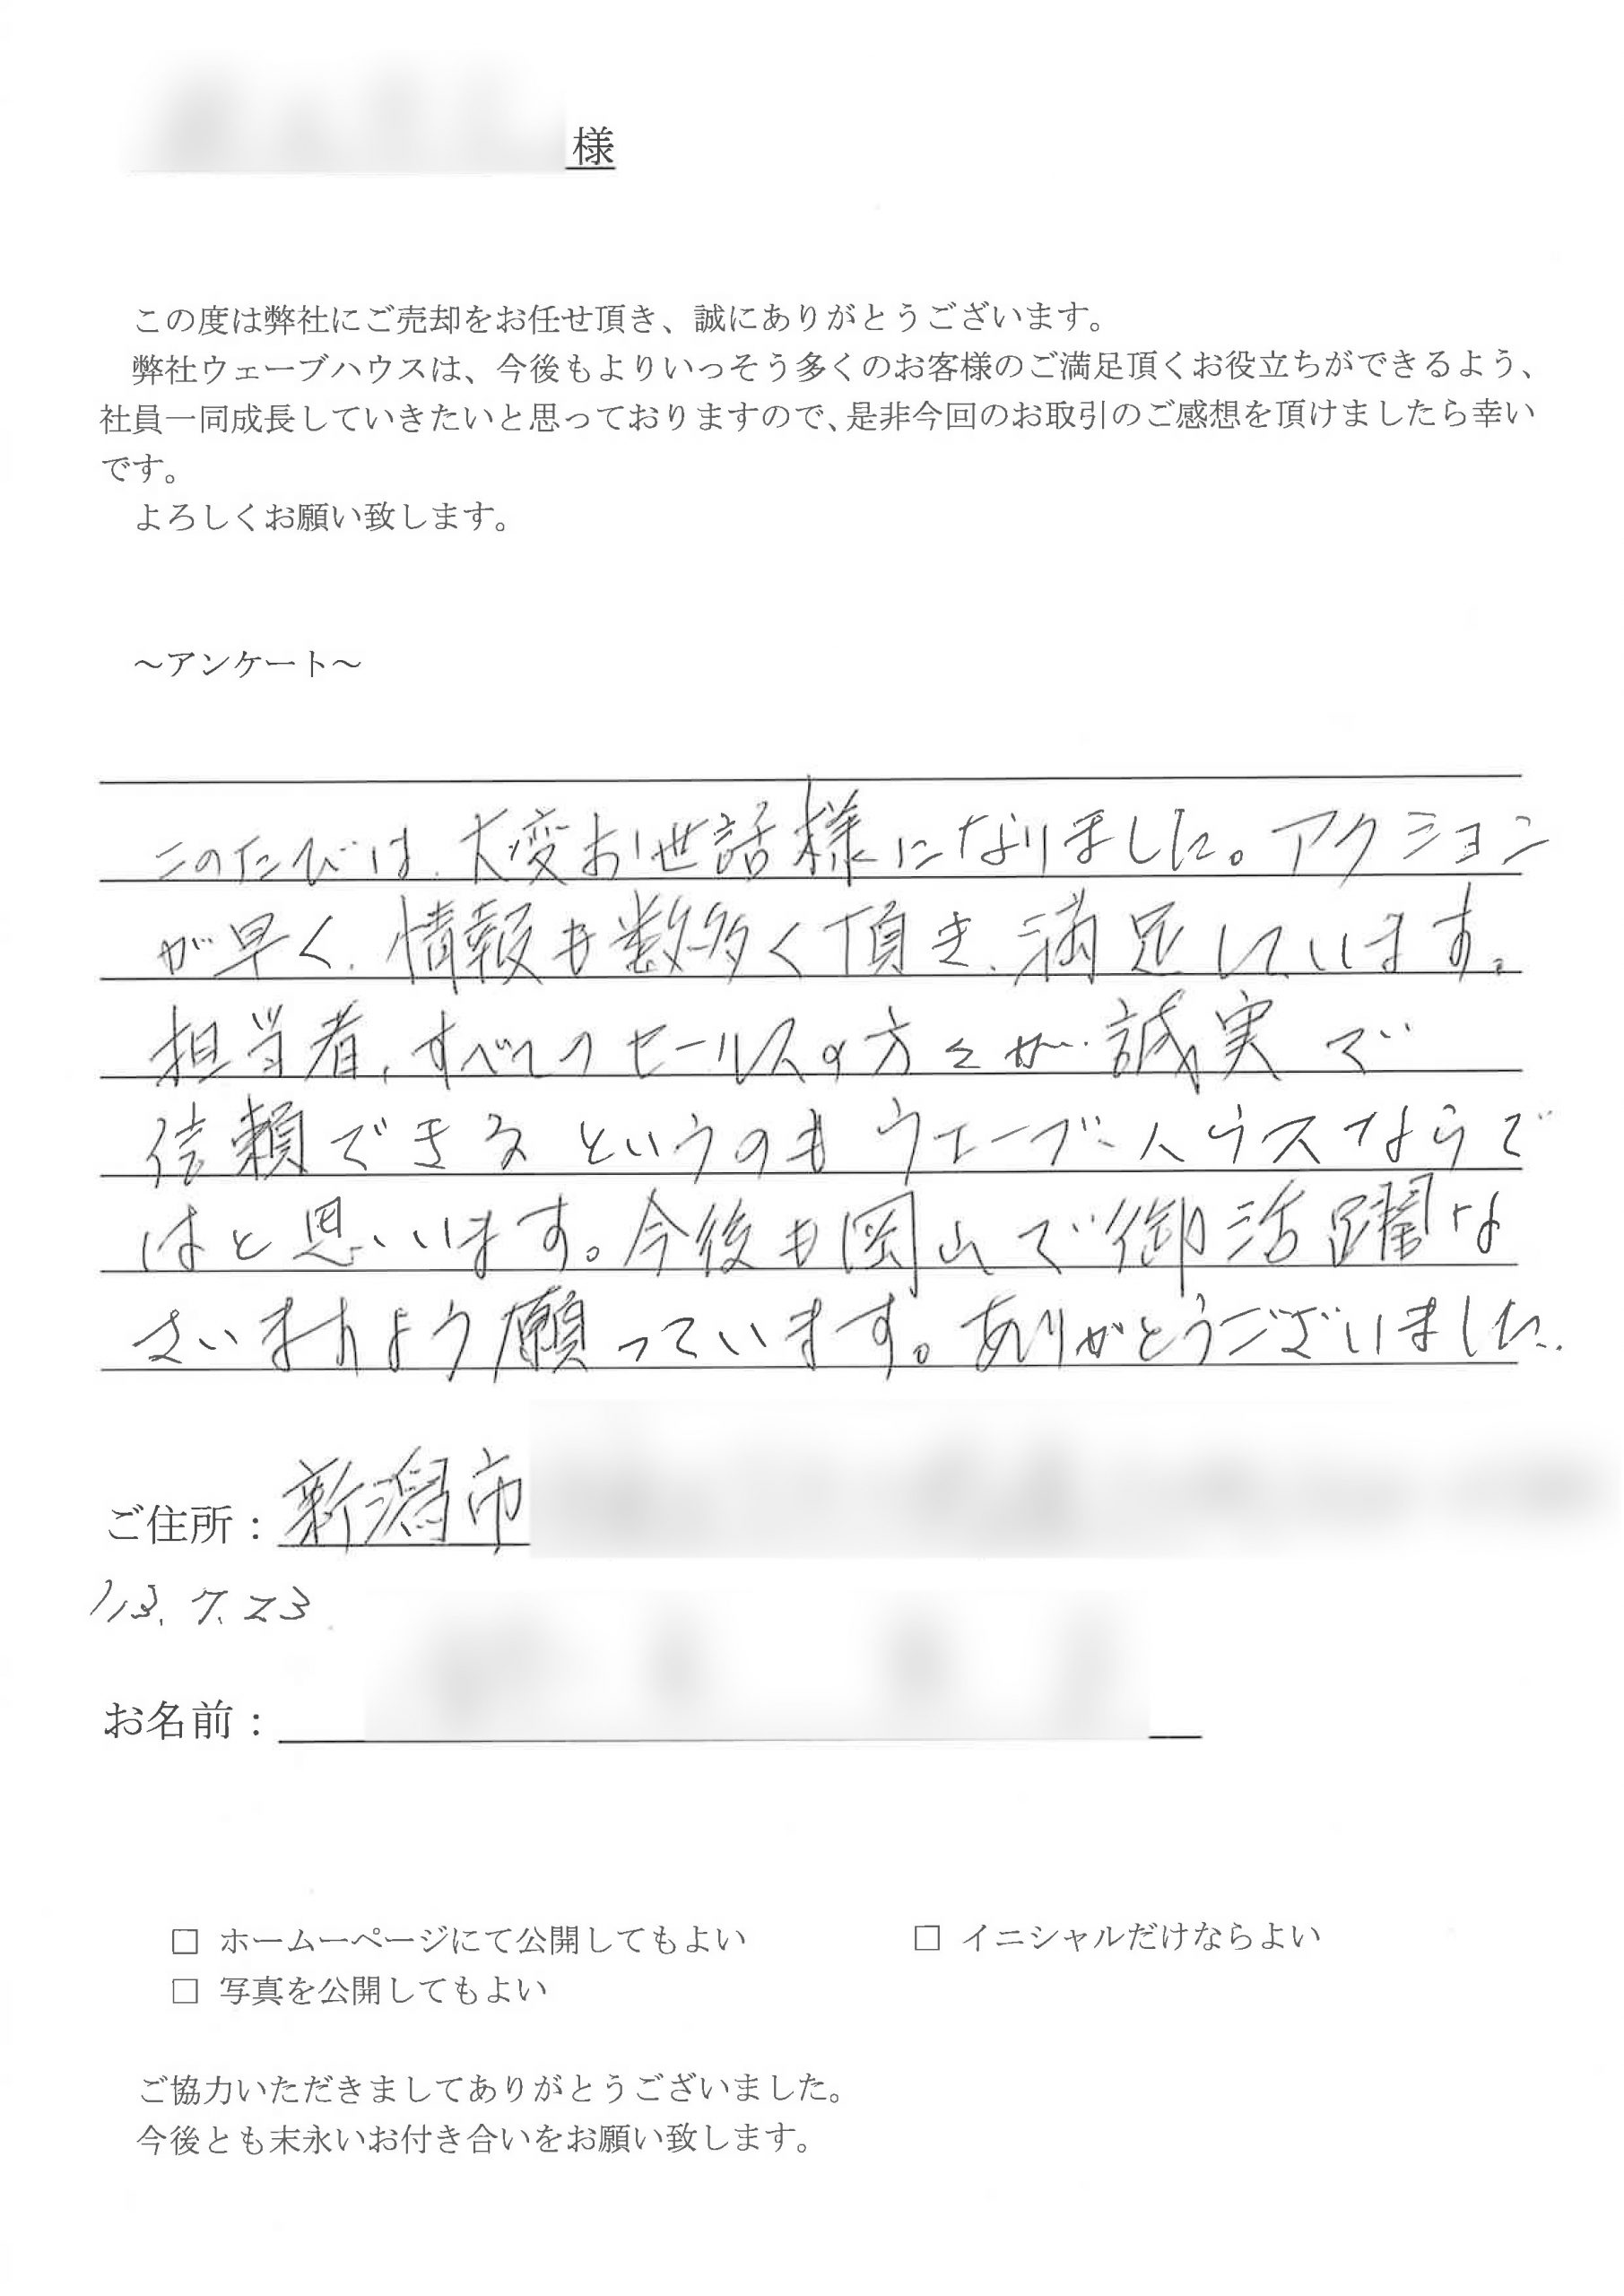 様
この度は弊社にご売却をお任せ頂き、誠にありがとうございます。
弊社ウェーブハウスは、今後もよりいっそう多くのお客様のご満足頂くお役立ちができるよう、
社員一同成長していきたいと思っておりますので、是非今回のお取引のご感想を頂けましたら幸い
です。
よろしくお願い致します。
～アンケート～
このたびは、大変お世話様になりました。アクション
が早く、情報も数多く頂き、満足しています。
担当者、すべてのセールスの方々が、誠実で
信頼できるというのもウェーブハウスならで
はと思います。今後も岡山で御活躍な
さいますよう願っています。ありがとうございました。
ご住所：新潟市
'13. 7. 23
お名前：
□ ホームーページにて公開してもよい □ イニシャルだけならよい
□ 写真を公開してもよい
ご協力いただきましてありがとうございました。
今後とも末永いお付き合いをお願い致します。